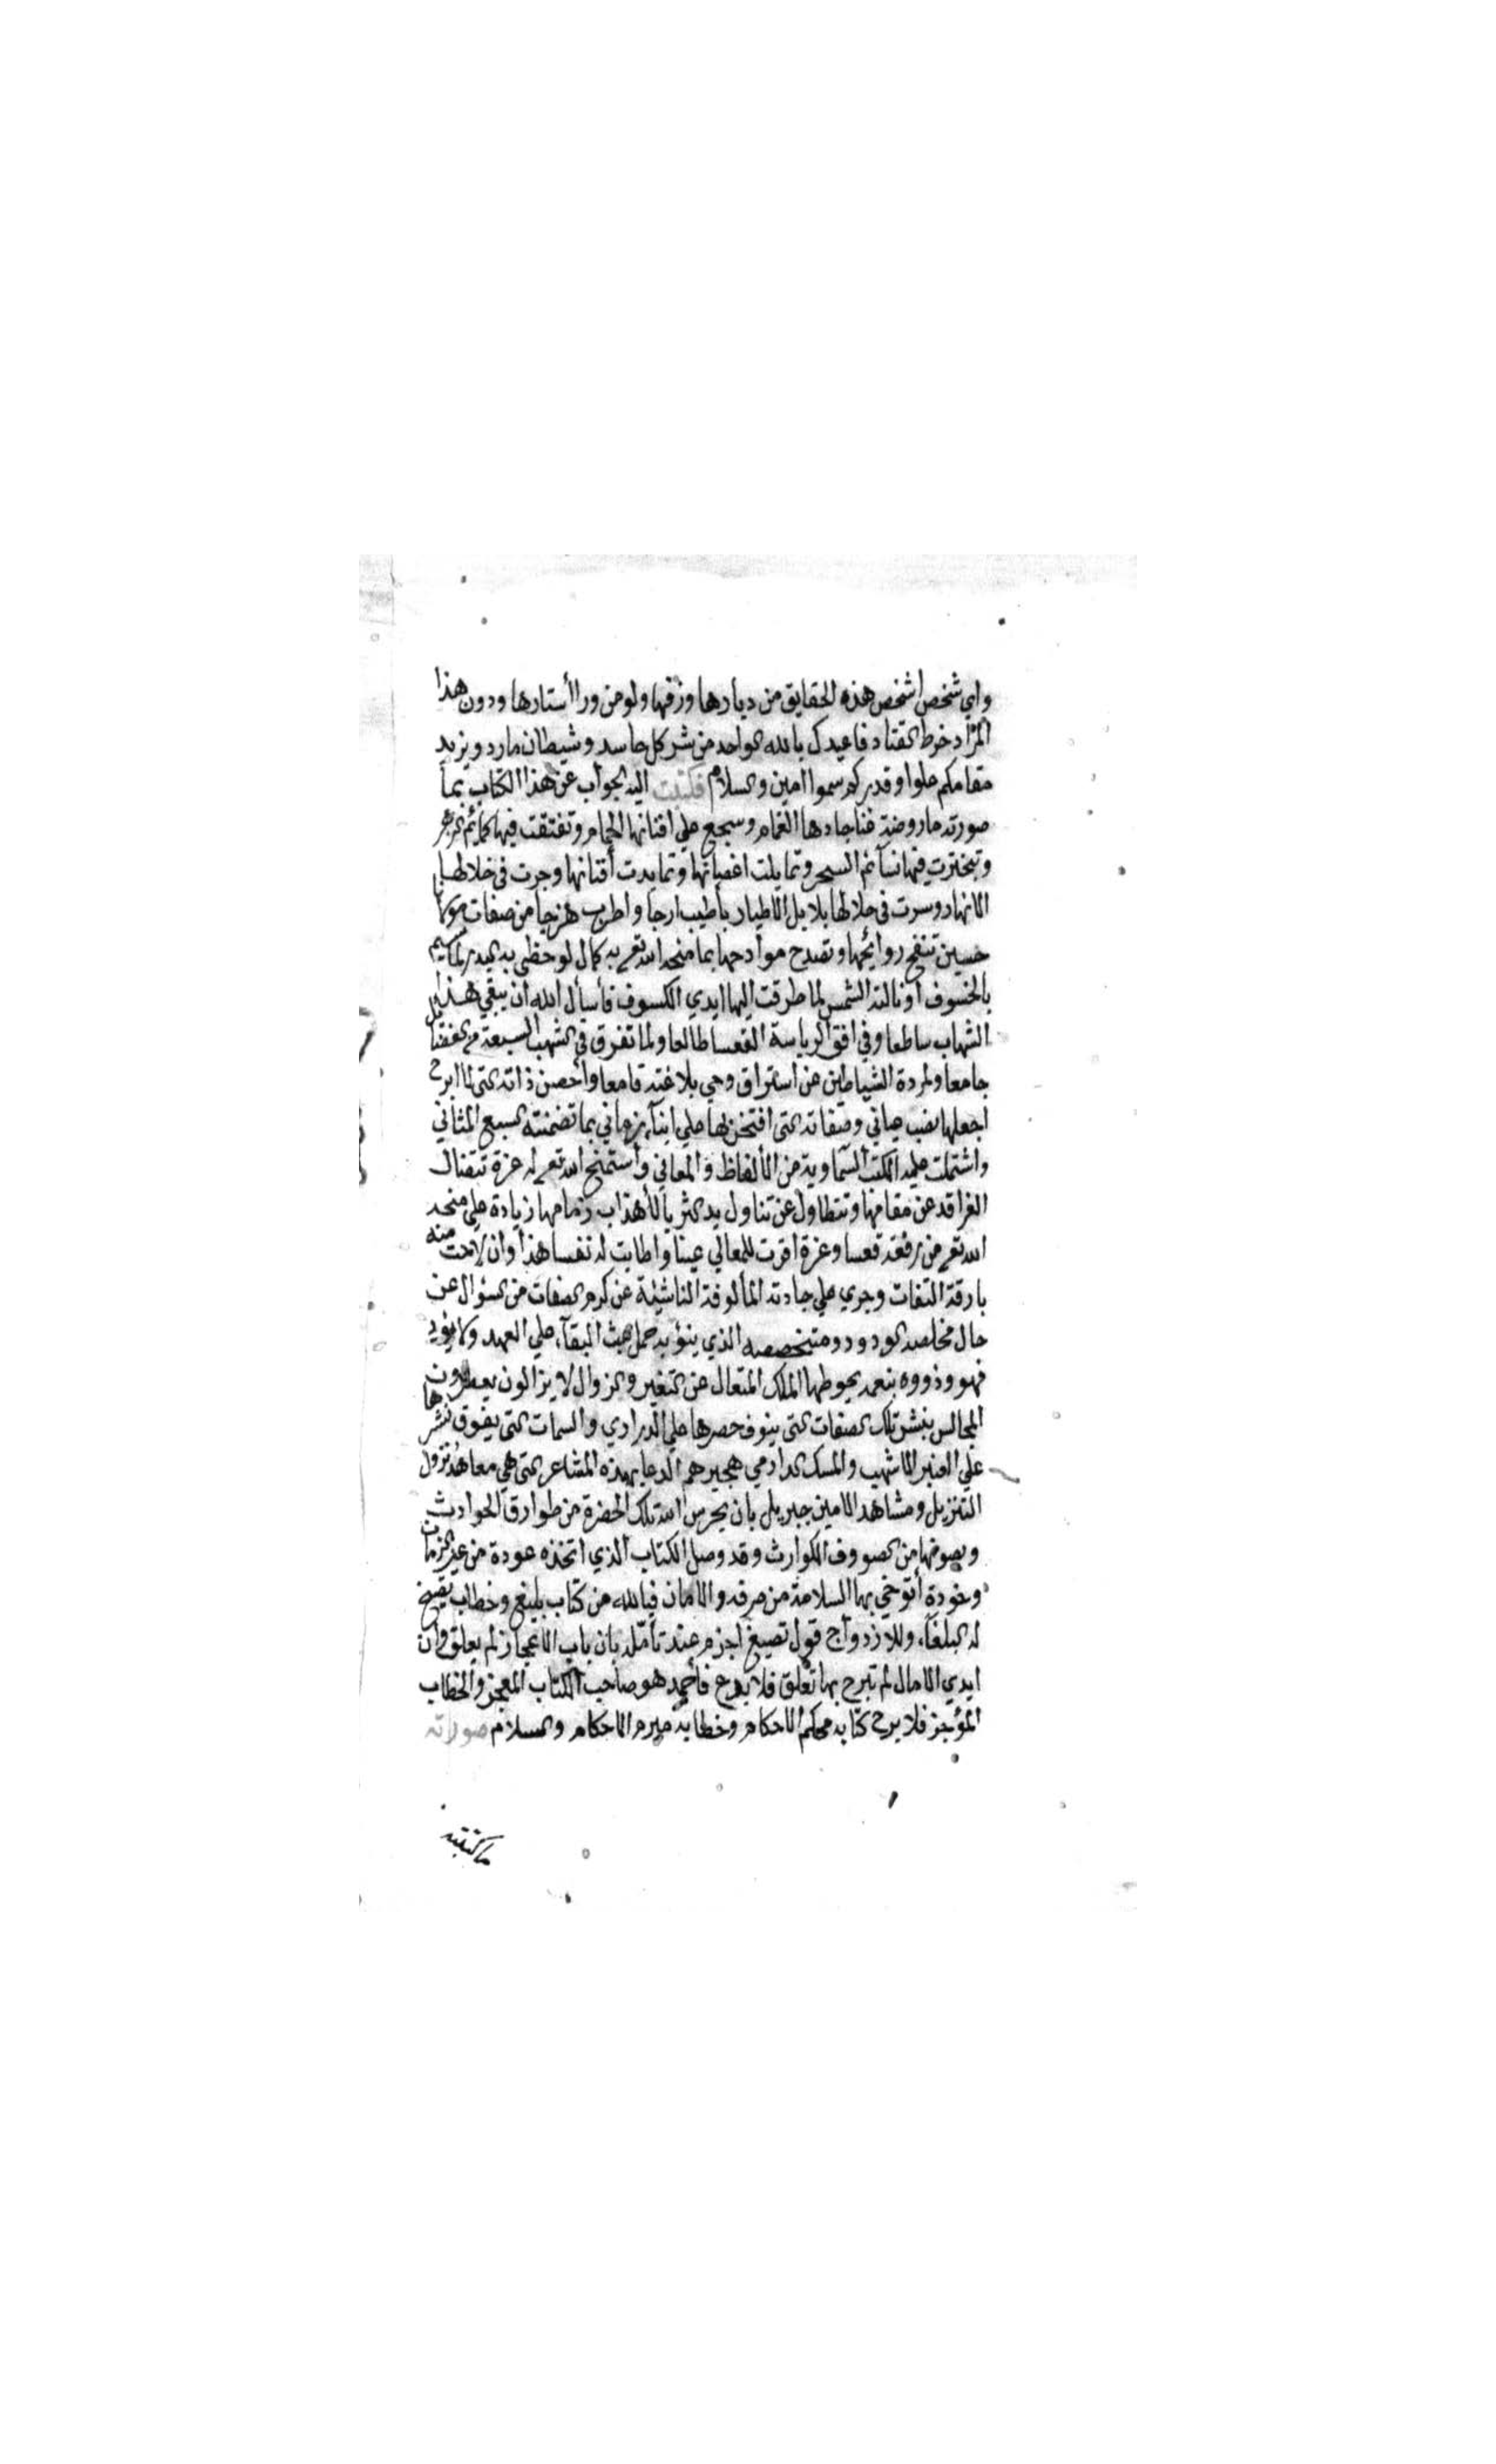 واي شخص اشخص هذه الحقايق من ديارها وزفها ولو من ورا أستارها ودون هذا
المراد خرط القتاد فاعيدك بالله الواحد من شر كل حاسد وشيطان مارد ويزيد
مقامكم علوا وقدركم سموا امين والسلام فكتبت اليه الجواب عن هذا الكتاب بما
صورته ما روضة غنا جادها الغمام وسجع علي افنانها الحمام وتفتقت فيها كمايم الزهر
وتبخترت فيها نسآئم السحر وتمايلت اغصانها وتمايدت أفنانها وجرت في خلالها
الانهار وسرت في حلالها بلابل الاطيار بأطيب ارجا واطرب هزجا من صفات مولانا
حسين تنفح روائحها وتصدح موادحها بما منحه الله تعالى به كمال لو حظي به البدر لما سيم
بالخسوف أو نالته الشمس لما طرقت اليها ايدي الكسوف فأسأل الله ان يبقي هذا
الشهاب ساطعا وفي افق الرياسة القعسا طالعا ولما تفرق في الشهب السبعة من الفضايل
جامعا ولمردة الشياطين عن استراق وحي بلاغته قامعا وأحصن ذاته التي لا ابرح
اجعلها نصب عياني وصفاته التي افتخر بها علي ابنآء زماني بما تضمنته السبع المثاني
واشتملت عليه الكتب السماوية من الألفاظ والمعاني وأستمنح الله تعالى له عزة تتضال
الفراقد عن مقامها وتتطاول عن تناول يد الثريا لأهذاب زمامها زيادة علي منحه
الله تعالى من رفعة قعسا وعزة اقرت للمعالي عينا واطابت له نفسا هذا وان لاحت منه
بارقة التفات وجري علي جادته المألوفة الناشئة عن كرم الصفات من السؤال عن
حال مخلصه الودود ومتخصصه الذي ينؤ به حمل عبث البقآء علي العهد ولا يؤد
فهو وذووه بنعمة يحوطها الملك المتعال عن التغير والزوال لا يزالون يعطرون
المجالس بنشر تلك الصفات التي ينوف حصرها علي الدراري والسمات التي يفوق نشرها
علي العنبر الاشهب والمسك الداري هجيرهم الدعا بهذه المشاعر التي هي معاهد نزول
التنزيل ومشاهد الامين جبريل بان يحرس الله تلك الحضرة من طوارق الحوادث
ويصونها من الصروف الكوارث وقد وصل الكتاب الذي اتخذه عودة من غير الزمان
وعودة أتوخي بها السلامة من صرفه والامان فيالله من كتاب بليغ وخطاب تصيخ
له البلغآء وللازدواج قول تصيغ اجزم عند تأمله بان باب الاعجاز لم يغلق وان
ايدي الامال لم تبرح بها تعلق فلا بدع فأحمد هو صاحب الكتاب المعجز والخطاب
المؤجز فلا برح كتابه محكم الاحكام وخطابه مبرم الاحكام والسلام صوراته
ما كتبته